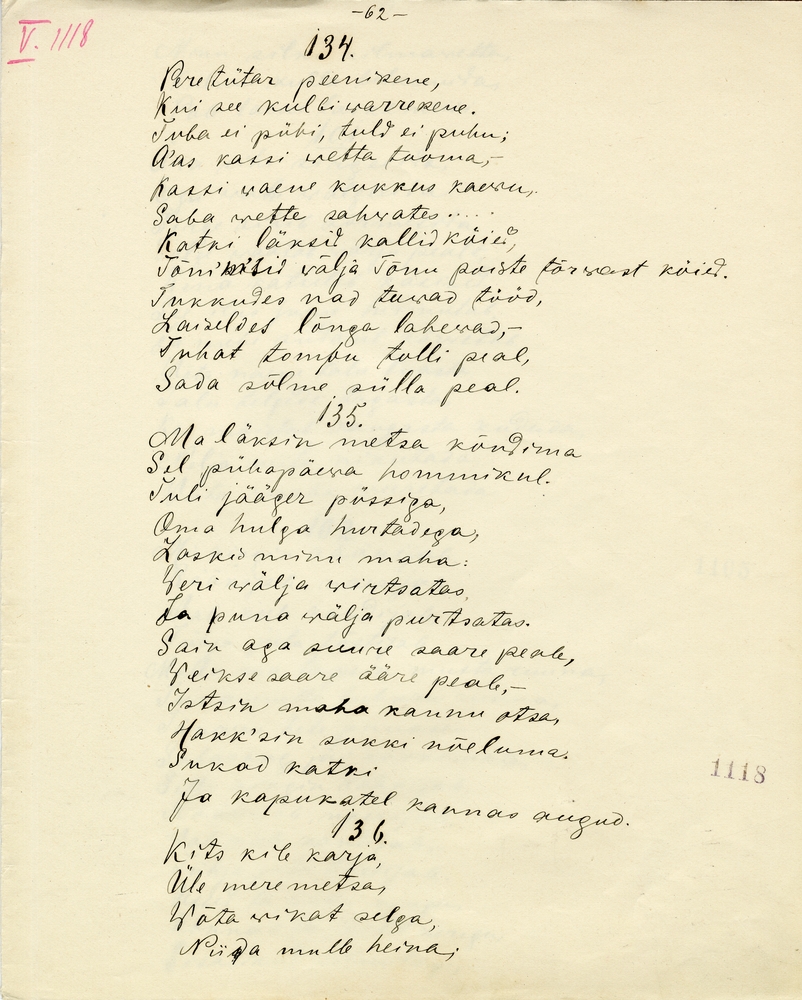 -62-
V. 1118
134.
Peretütar peenikene,
Kui see kulbiwarrekene.
Tuba ei pühi, tuld ei puhu;
A'as kassi wetta tooma,-
Kassi waene kukkus kaewu,
Saba wette sahwates.....
Katki läksid kallid köied,
Tõni wälja Tõnu poiste tõrwast köied.
Tukkudes nad tewad tööd,
Laiseldes lõnga lahewad,-
Tuhat tombu tolli peal,
Sada sõlme sülla peal.
135.
Ma läksin metsa kõndima
Sel pühapäewa hommikul.
Tuli jääger püssiga,
Oma hulga hurtadega,
Laskis minu maha:
Weri wälja wirtsatas,
Ja puna wälja purtsatas.
Sain aga suure saare peale,
Weikse saare ääre peale,-
Istsin maha kannu otsa,
Hakk'sin sukki nõeluma.
Sukad katki
Ja kapukatel kannas augud.
1118
136.
Kits kile karja,
Üle meremetsa,
Wõta wikat selga,
Niida mulle heina;